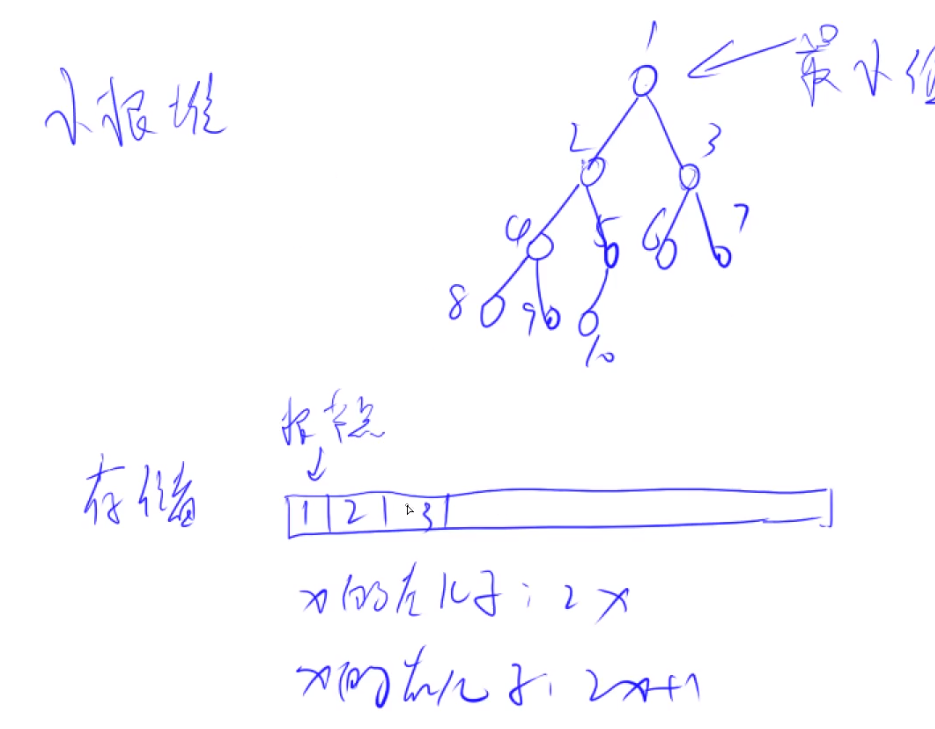 1
最小值
小根堆
2 3
4 5 6 7
8 9 10
根节点
存储 1 2 3
x的左儿子：2x
x的右儿子：2x+1